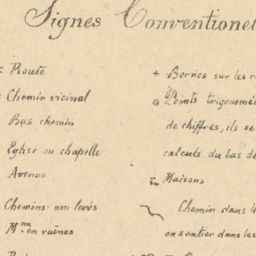 Signes Conventionel
Route
Chemin vicinal
Bas chemin
Eglise ou chapelle
Avenue
Chemins non levés
M.on en ruines
+ Bornes sur les r
Points trigonomé
de chiffres, ils se
calculs du bas de
Maisons
Chemin dans l
ou sentier dans les